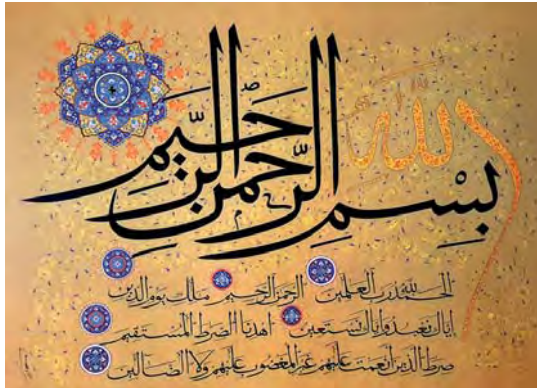 بِسْمِ اللّٰه الرَّحْمٰنِ الرَّحِيمِ
الحمد لله رب العلمين الرحمن الرحيم ملك يوم الدين
إياك نعبد وإياك نستعين اهدنا الصرط المستقيم
صرط الذين أنعمت عليهم غير المغضوب عليهم ولا الضالين